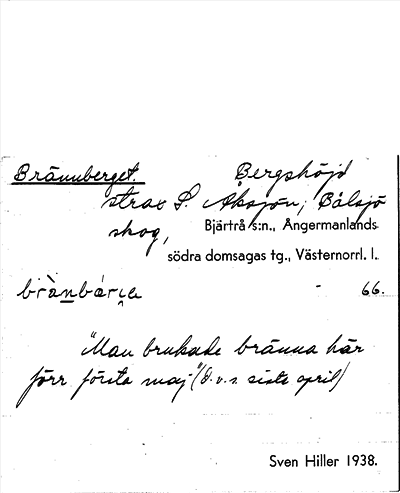 Brännberget. Bergshöjd
strax S. Åksjön, Bålsjö
skog, Bjärtrå s:n., Ångermanlands
södra domsagas tg., Västernorrl. l.
brànbárıɐ - 66.
"Man brukade bränna här
förr första maj" (d.v.s. sista april)
Sven Hiller 1938.